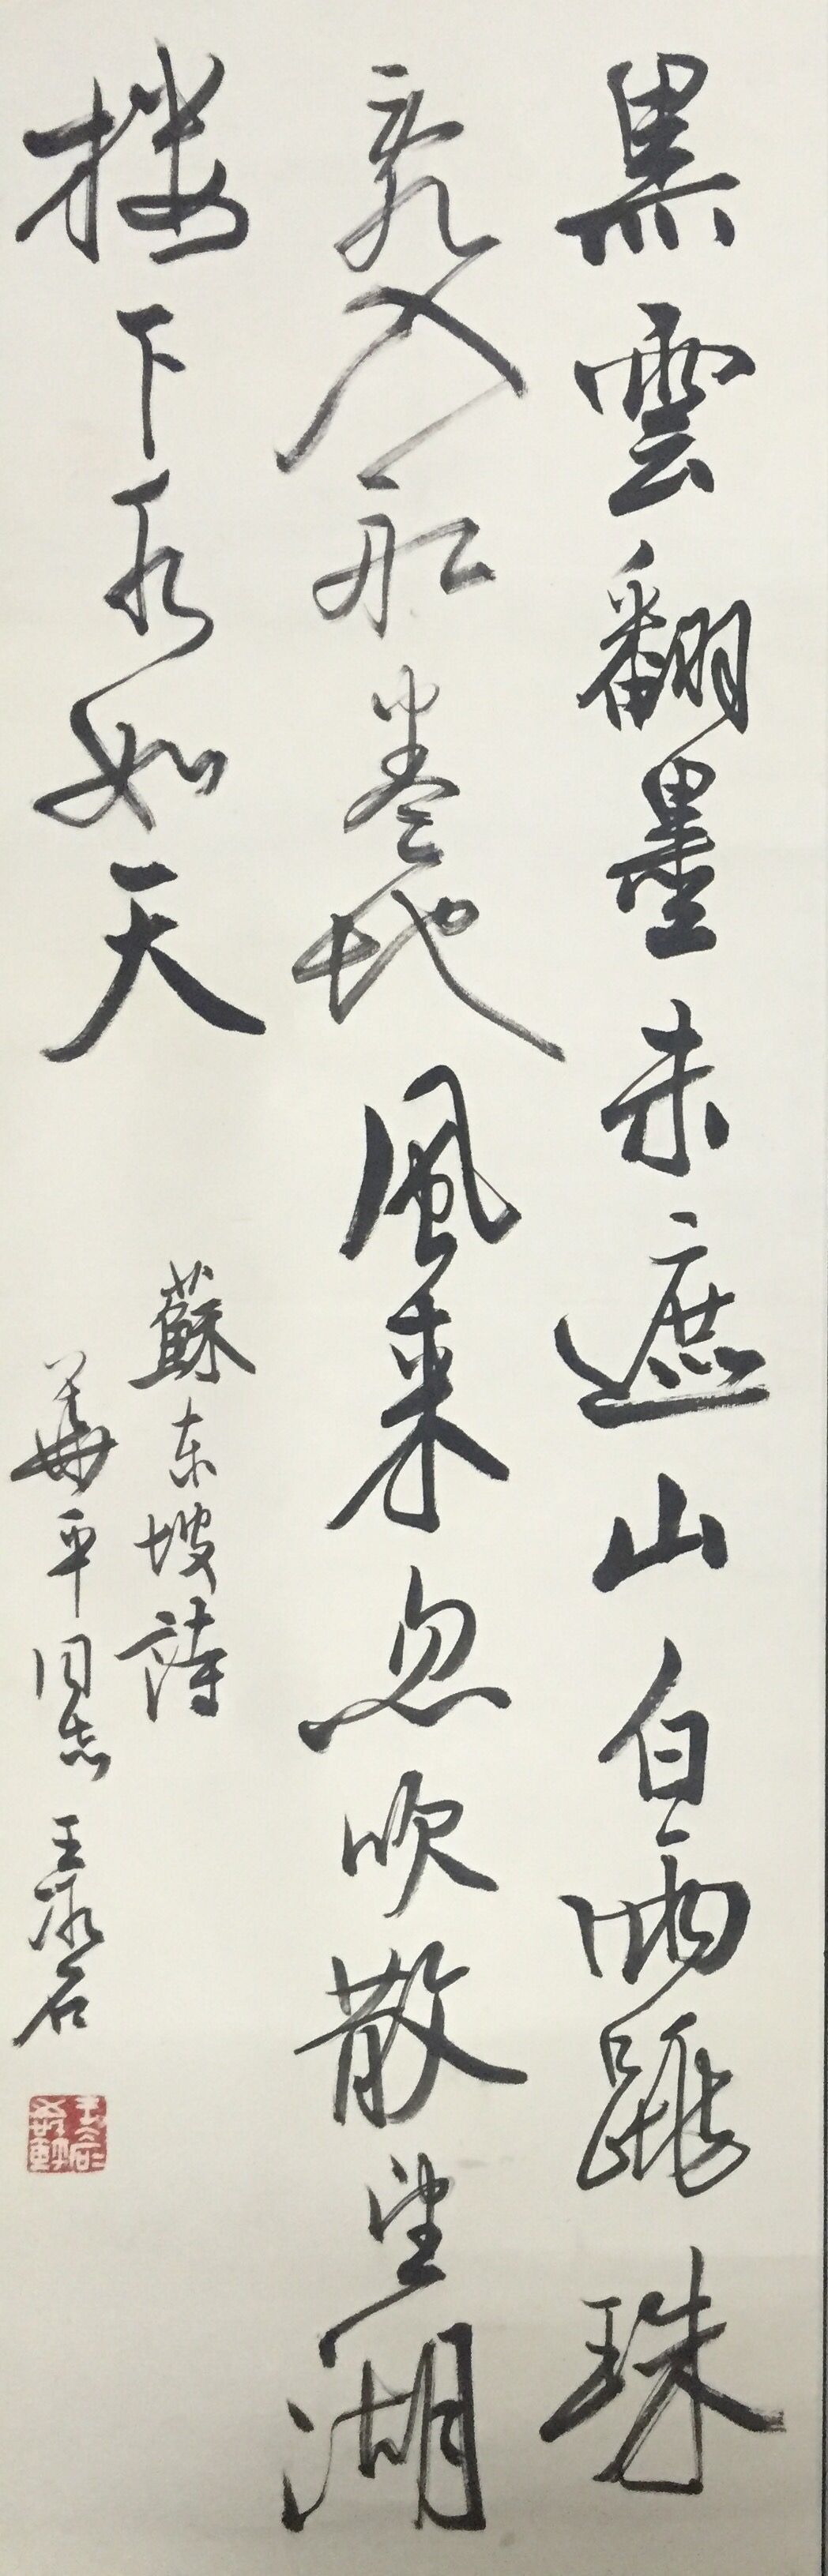 黑雲翻墨未遮山白雨跳珠
亂入船卷地風来忽吹散望湖
楼下水如天
蘇东坡詩
華平同志 王冰石